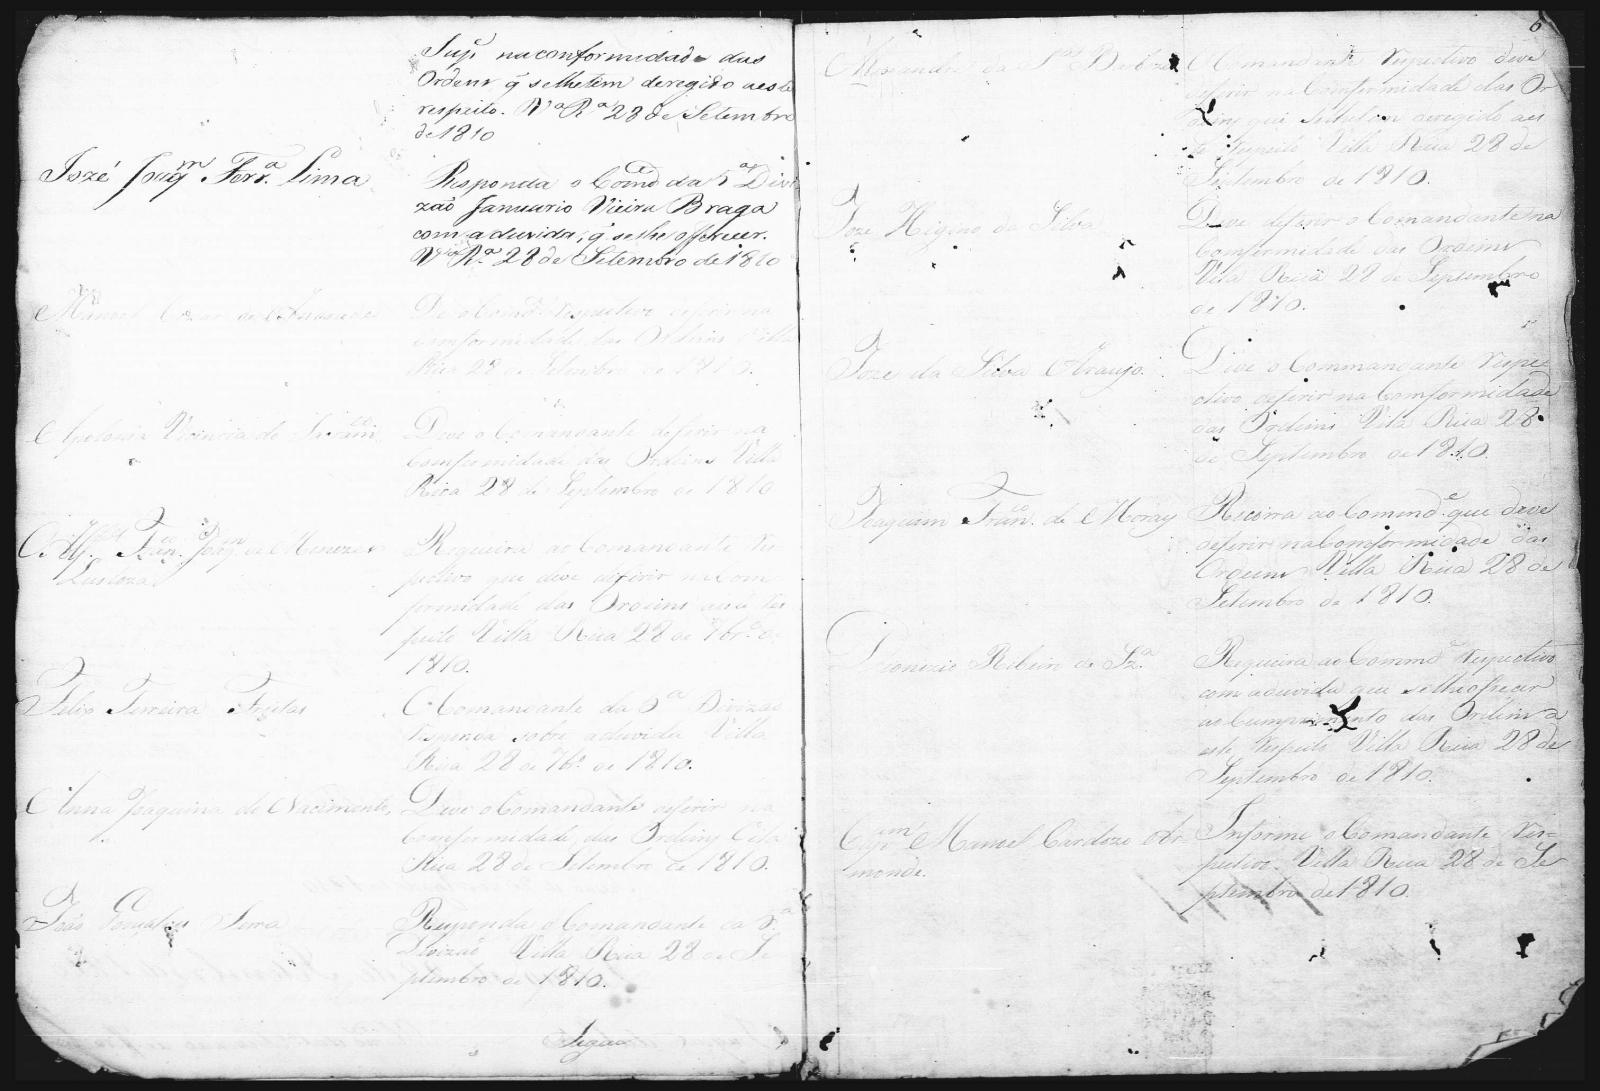 Supe. na conformidade das
Ordens q̃ se lhe tem deregido a este
respeito. Va. Ra. 28 de Setembro
de 1810
Jozé Joaqm. Ferra. Lima
Responda o Comde. da 5a. Divi
zaõ Januario Vieira Braga
com a duvida, q̃ se lhe offerecer.
Va. Ra. 28 de Setembro de 1810
Manoel de Andrade
De o Comde. respectivo deferir na
comformidade das Ordens Villa
Rica 28 de Setembro de 1810.
Apolonia
Deve o Comandante deferir na
Comformidade das Ordens Villa
Rica 28 de Septembro de 1810
Alfs. Franco. Joaqm. de Menezes
Requeira ao Comandante res
pectivo que deve diferir na Com
formidade das Ordens a este res
peito Villa Rica 28 de 7bro. de
1810.
Felix Ferreira Freitas
O Comandante da 5a. Divizaõ
responda sobre a duvida Villa
Rica 28 de 7bro. de 1810.
Anna Joaquina do Nacimento
Deve o Comandante deferir na
Comformidade das Ordens Villa
Rica 28 de Setembro de 1810.
Joaõ Gonçalves Serra
Responda o Comandante da 5a.
Divizaõ Villa Rica 28 de Se
ptembro de 1810.
Segue
6
Alexandre da Sa.
O Comandante respectivo deve
deferir na Comformidade das Or
dens que se lhe tem deregido a es
te respeito Villa Rica 28 de
Setembro de 1810.
Joze Higino da Silva
Deve deferir o Comandante na
Comformidade das Ordens
Vila Rica 28 de Septembro
de 1810.
Joze da Silva Araujo.
Deve o Commandante respe
ctivo deferir na Comformidade
das Ordens Vila Rica 28
de Septembro de 1810.
Joaquim Franco. de Moraes
Recorra ao Comende. que deve
deferir na Comformidade das
Ordens Villa Rica 28 de
Setembro de 1810.
Dionizio Ribeiro de Sza.
Requeira ao Commde. respectivo
com a duvida que se lhe ofrecer
ao Cumprimento das Ordens a
este respeito Villa Rica 28 de
Septembro de 1810.
Manoel Cardozo
monde.
Informe o Comandante res=
pectivo. Villa Rica 28 de Se
ptembro de 1810.